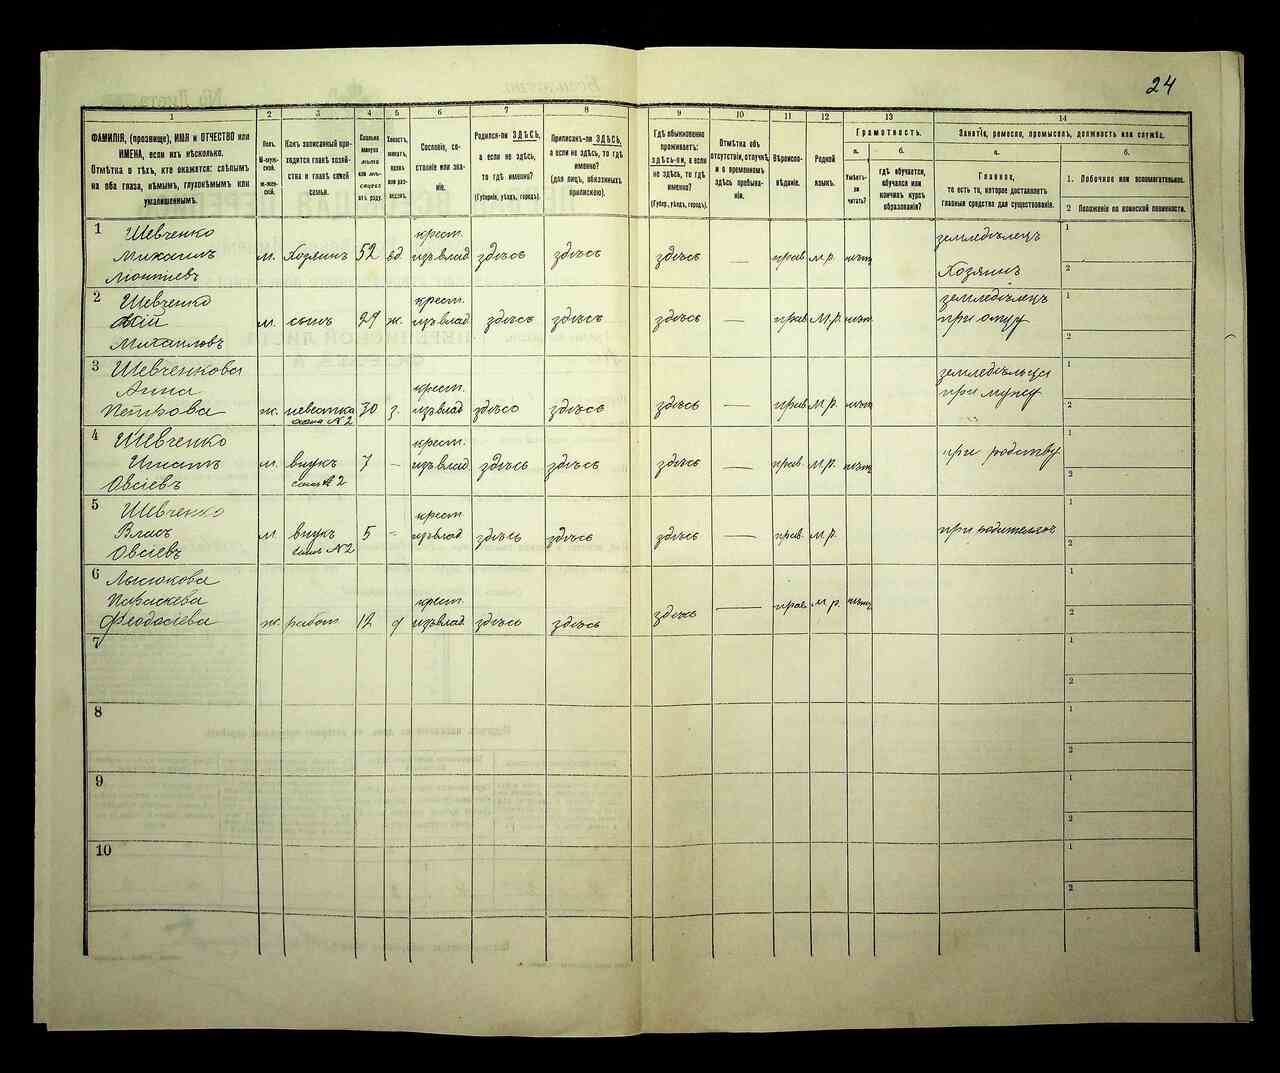 24
1
2
3
4
5
6
7
8
9
10
11
12
13
14
ФАМИЛІЯ, (прозвище), ИМЯ и ОТЧЕСТВО или
ИМЕНА, если ихъ нѣсколько.
Отмѣтка о тѣхъ, кто окажется: слѣпымъ
на оба глаза, нѣмымъ, глухонѣмымъ или
умалишеннымъ.
Полъ.
М-муж-
ской.
ж-жен-
скій.
Какъ записанный при-
ходится главѣ хозяй-
ства и главѣ своей
семьи.
Сколько
минуло
лѣтъ
или мѣ-
сяцевъ
отъ роду.
Холостъ,
женатъ,
вдовъ
или раз-
веденъ.
Сословіе, со-
стояніе или зва-
ніе.
Родился-ли ЗДѢСЬ,
а если не здѣсь,
то гдѣ именно?
(Губернія, уѣздъ, городъ).
Приписанъ-ли ЗДѢСЬ,
а если не здѣсь, то гдѣ
именно?
(для лицъ, обязанныхъ
припискою).
Гдѣ обыкновенно
проживаетъ:
здѣсь-ли, а если
не здѣсь, то гдѣ
именно?
(Губер., уѣздъ, городъ).
Отмѣтка объ
отсутствіи, отлучкѣ
и о временномъ
здѣсь пребыва-
ніи.
Вѣроиспо-
вѣданіе.
Родной
языкъ.
Грамотность.
а.
Умѣетъ-
ли
читать?
б.
гдѣ обучается,
обучался или
кончилъ курсъ
образованія?
Занятіе, ремесло, промыселъ, должность или служба.
а.
Главное,
то есть то, которое доставляетъ
главныя средства для существованія.
б.
1. Побочное или вспомогательное.
2 Положеніе по воинской повинности.
1 Шевченко
Михаилъ
м. Хозяинъ 52 вд. крест. изъ влад здѣсь здѣсь здѣсь — прав М.р. нѣт земледѣлецъ
Хозяинъ
1
2
2 Шевченко
Михаиловъ
м. сынъ 29 ж. крест. изъ влад здѣсь здѣсь здѣсь — прав М.р. нѣт земледѣлецъ
при отцу
1
2
3 Шевченкова
Анна
Петрова
ж. невестка 30 з. крест. изъ влад здѣсь здѣсь здѣсь — прав М.р. нѣт земледѣльца
№ 2 при мужу
1
2
4 Шевченко
Игнатъ
Овсіевъ
м. внукъ 7 – крест. изъ влад здѣсь здѣсь здѣсь — прав. М.р. нѣт при родству
№ 2
1
2
5 Шевченко
Власъ
Овсіевъ
м. внукъ 5 – крест. изъ влад здѣсь здѣсь здѣсь — прав. М.р. при родителяхъ
№ 2
1
2
6
Параскева
Феодосіева
ж. работ 12 д крест. изъ влад здѣсь здѣсь здѣсь — прав. М.р. нѣт
1
2
7
1
2
8
1
2
9
1
2
10
1
2